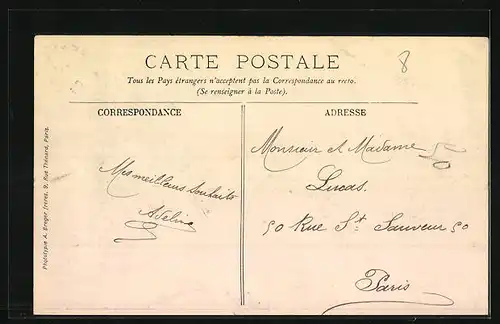 CARTE POSTALE
8
Tous les Pays étrangers n'acceptent pas la Correspondance au recto.
(Se renseigner à la Poste).
CORRESPONDANCE
ADRESSE
Mes meilleurs souhaits
Adeline
Monsieur et Madame
Lucas.
50 Rue St. Sauveur 50
Paris
50
Phototypie A. Breger frères, 9, Rue Thénard, Paris.